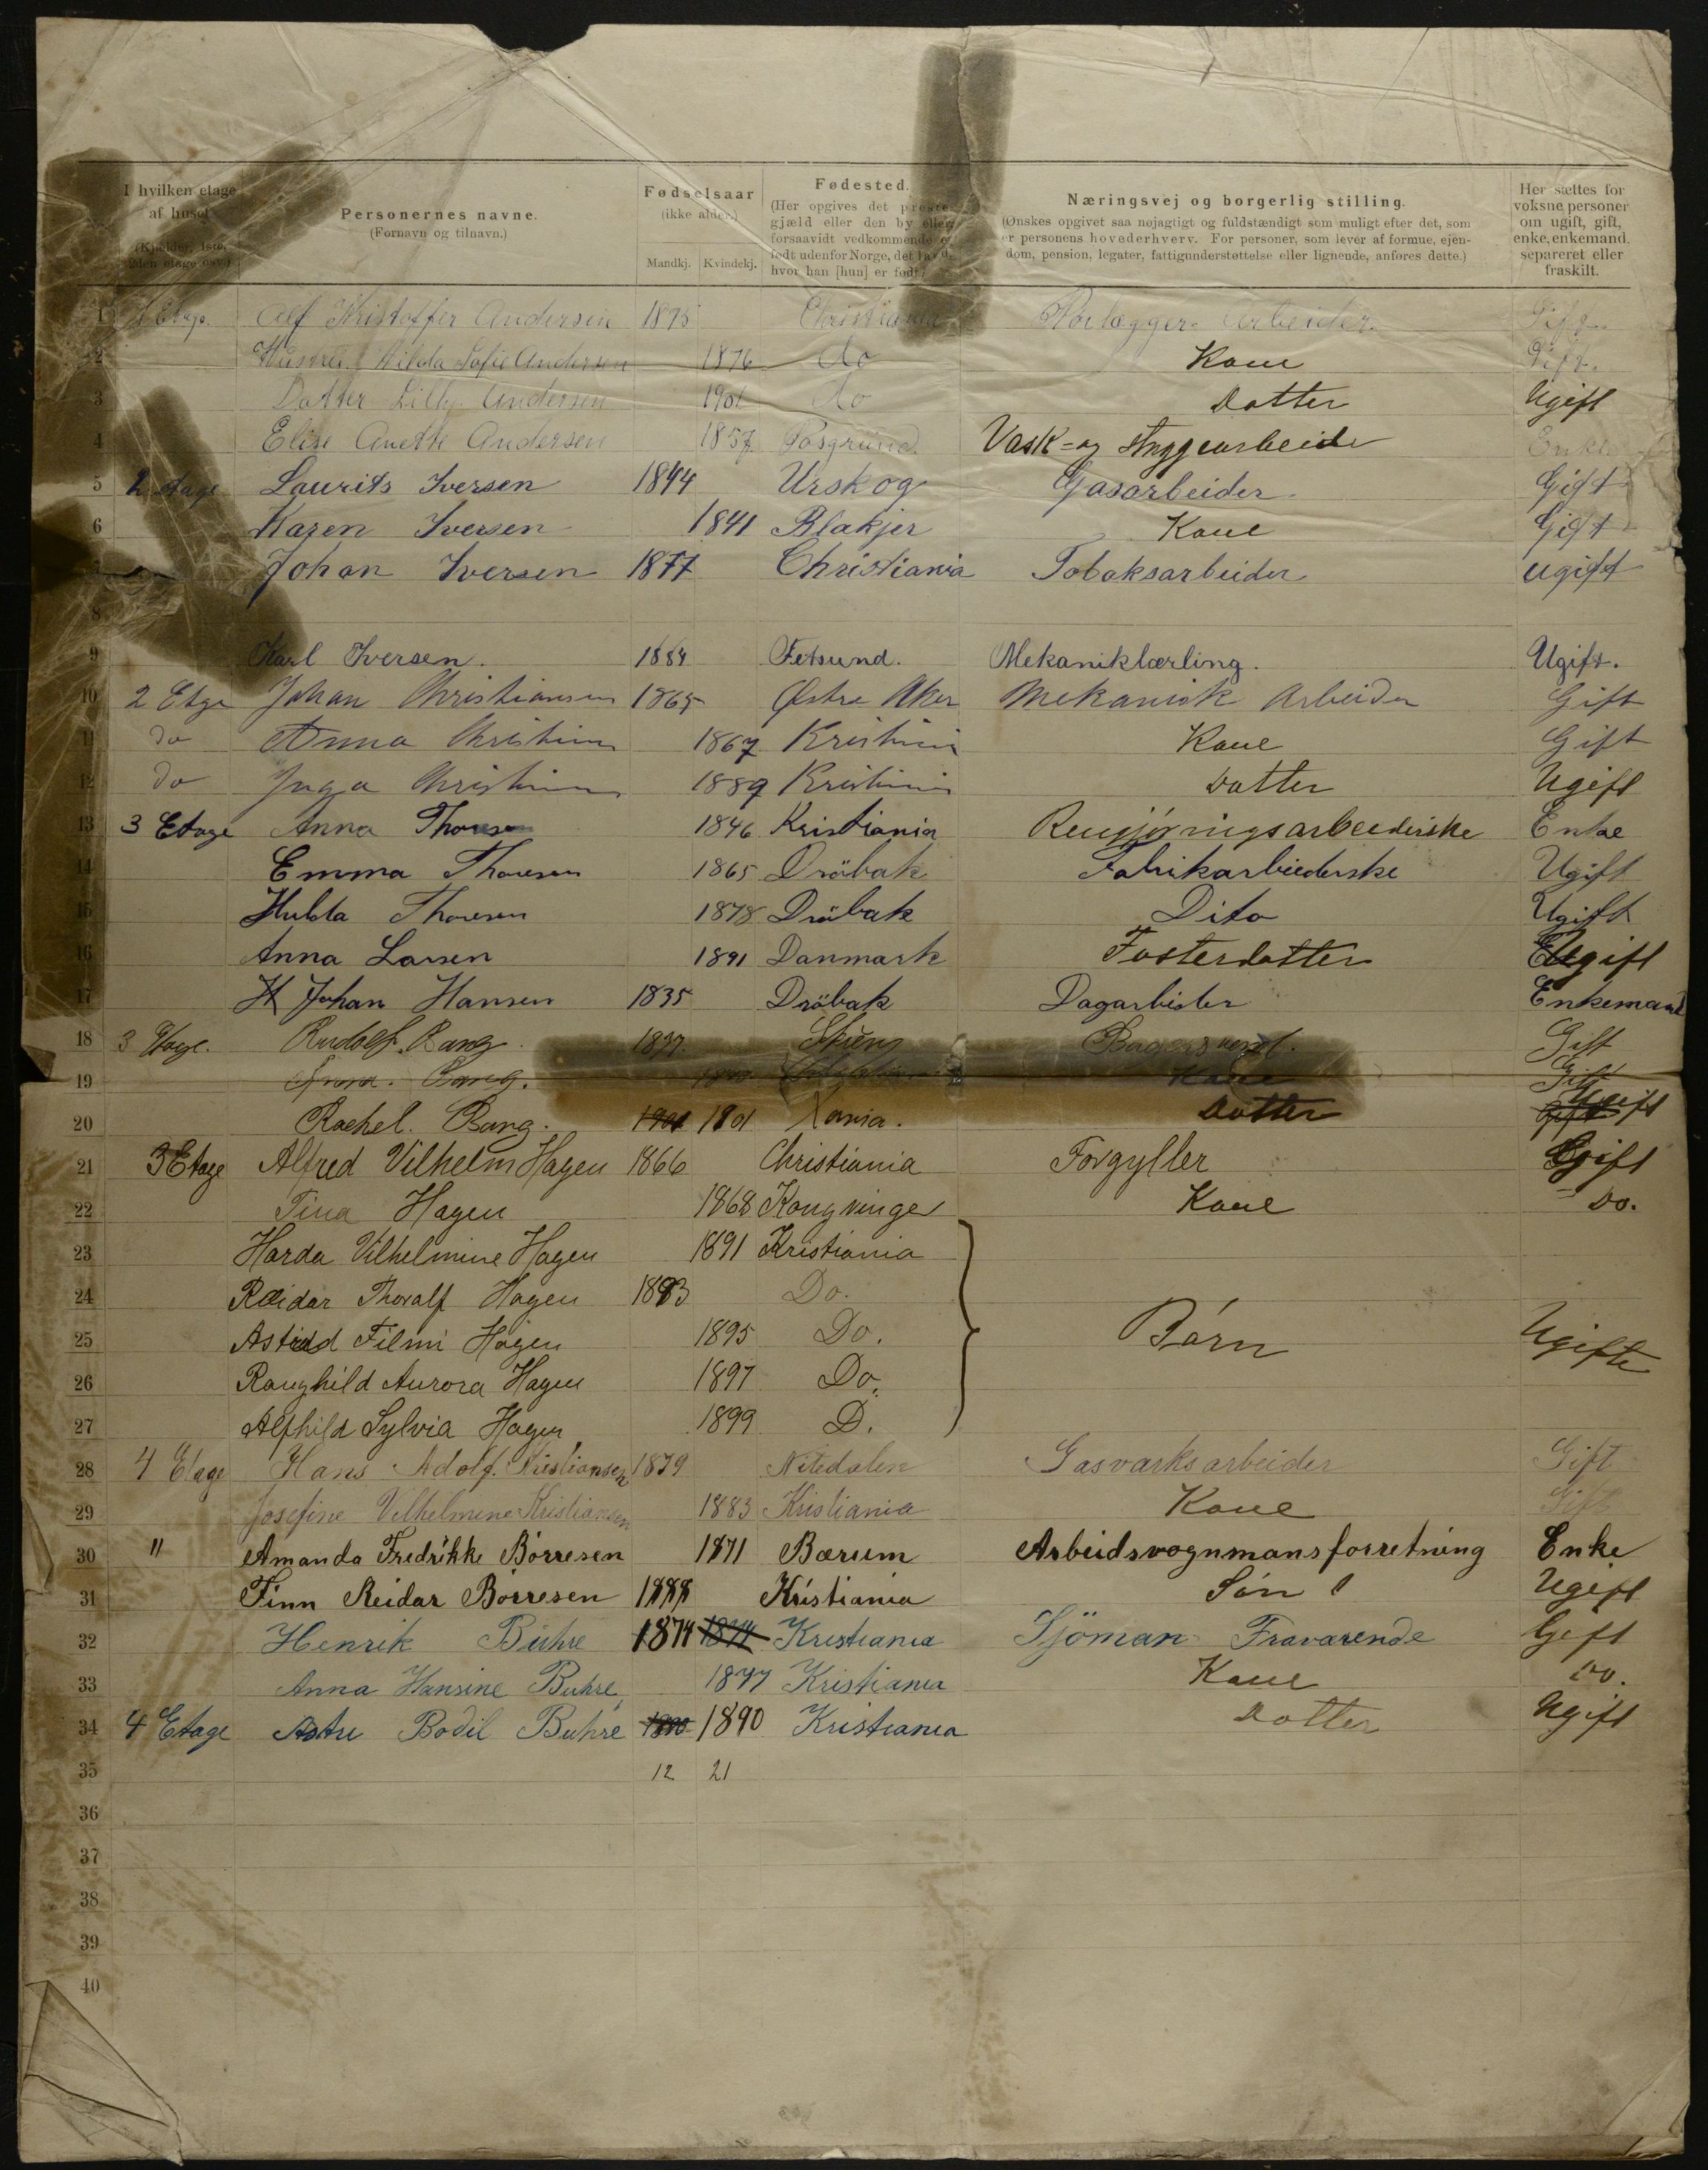 I hvilken etage af huset (Kjelder, 1ste, 2den etage osv.)
Personernes navne. (Fornavn og tilnavn.)
Fødselsaar (ikke alder.) Mandkj. Kvindekj.
Fødested. (Her opgives det præstegjæld eller den by eller, forsaavidt vedkommende er født udenfor Norge, det land, hvor han [hun] er født.)
Næringsvej og borgerlig stilling. (Ønskes opgivet saa nøjagtigt og fuldstændigt som muligt efter det, som er personens hovederhverv. For personer, som lever af formue, ejendom, pension, legater, fattigunderstøttelse eller lignende, anføres dette.)
Her sættes for voksne personer om ugift, gift, enke, enkemand, separeret eller fraskilt.
1 1 Etage. Alf Kristoffer Andersen 1875 Christiania Rørlægger Arbeider. Gift.
2 Hustru Hilda Sofie Andersen 1876 do Kone Gift.
3 Datter Lilly Andersen 1901 do Datter Ugift
4 Elise Anethe Andersen 1857 Posgrund. Vask- og Stryggearbeide Enke
5 2 Etage Laurits Iversen 1844 Urskog Gasarbeider Gift
6 Karen Iversen 1841 Blakjer Kone Gift
7 Johan Iversen 1877 Christiania Tobaksarbeider ugift
8
9 Karl Iversen. 1884 Fetsund. Mekaniklærling. Ugift.
10 2 Etge Johan Christiansen 1865 Østre Aker Mekanisk Arbeider Gift
11 do Anna Christians 1867 Kristiania Kone Gift
12 do Inga Christians 1889 Kristiania Datter Ugift
13 3 Etage Anna Thoresen 1846 Kristiania Rengjøringsarbeiderske Enke
14 Emma Thoresen 1865 Dröbak Fabrikarbeiderske Ugift
15 Hulda Thoresen 1878 Dröbak Dito Ugift
16 Anna Larsen 1891 Danmark Fosterdatter Ugift
17 H Johan Hansen 1835 Dröbak Dagarbeider Enkemand
18 3 Etage. Rudolf Bang 1877 Bagersvend. Gift
19 Anna. Bang. Kone Gift
20 Rachel. Bang. 1901 1801 Xania. Datter Gift Ugift
21 3 Etage Alfred Vilhelm Hagen 1866 Christiania Forgyller Gift
22 Tina Hagen 1868 Kongvinger Kone Do.
23 Harda Vilhelmine Hagen 1891 Kristiania
24 Reidar Thoralf Hagen 1893 Do.
25 Astrid Filmi Hagen 1895 Do. Børn Ugifte
26 Raughild Aurora Hagen 1897 Do.
27 Alfhild Sylvia Hagen 1899 D.
28 4 Etage Hans Adolf. Kristiansen 1879 Nitedalen Gasværksarbeider Gift
29 Josefine Vilhelmine Kristiansen 1883 Kristiania Kone Gift
30 " Amanda Fredrikke Börresen 1871 Bærum Arbeidsvognmansforretning Enke
31 Finn Reidar Börresen 1888 Kristiania Sön Ugift
32 Henrik Buhre 1874 1874 Kristiania Sjöman Fraværende Gift
33 Anna Hansine Buhre 1877 Kristiania Kone Do.
34 4 Etage Astri Bodil Buhre 1890 1890 Kristiania Datter Ugift
35 12 21
36
37
38
39
40